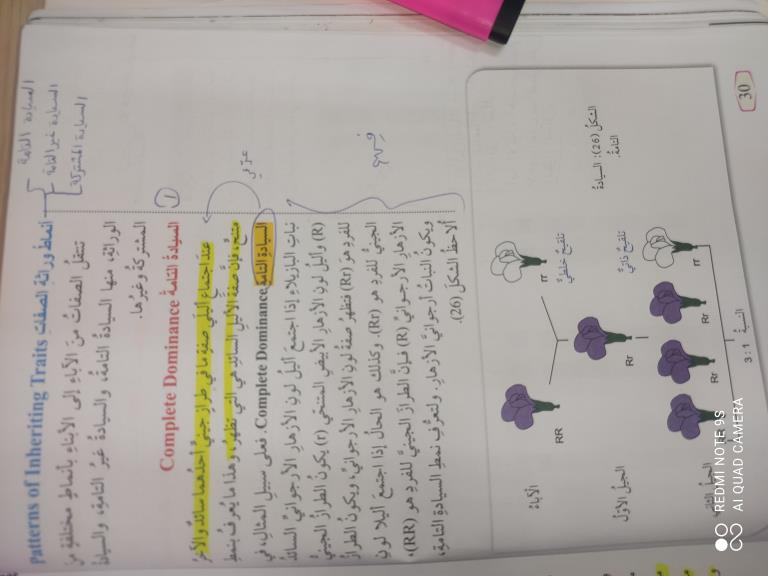 أنماط وراثة الصفات Patterns of Inheriting Traits
السيادة التامة
السيادة غير التامة
السيادة المشتركة
تنتقلُ الصفاتُ منَ الآباءِ إلى الأبناءِ بأنماطٍ مختلفةٍ منَ
الوراثةِ، منها السيادةُ التامةُ، والسيادةُ غيرُ التامةِ، والسيادةُ
المشتركةُ وغيرُها.
السيادةُ التامةُ Complete Dominance
1
عندَ اجتماعِ أليلَي صفةٍ ما في طرازٍ جينيٍّ أحدُهُما سائدٌ والآخرُ
متنحٍّ، فإنَّ صفةَ الأليلِ السائدِ هيَ التي تظهرُ، وهذا ما يُعرفُ بنمطِ
السيادةِ التامةِ Complete Dominance. فعلى سبيلِ المثالِ، في
نباتِ البازيلاءِ إذا اجتمعَ أليلُ لونِ الأزهارِ الأرجوانيُّ السائدُ
(R) وأليلُ لونِ الأزهارِ الأبيضُ المتنحّي (r) يكونُ الطرازُ الجينيُّ
للفردِ هوَ (Rr) فتظهرُ صفةُ لونِ الأزهارِ الأرجوانيِّ، ويكونُ الطرازُ
الجينيُّ للفردِ هوَ (Rr)، وكذلكَ هوَ الحالُ إذا اجتمعَ أليلا لونِ
الأزهارِ الأرجوانيِّ (R) فإنَّ الطرازَ الجينيَّ للفردِ هوَ (RR)،
ويكونُ النباتُ أرجوانيَّ الأزهارِ. ولتعرُّفِ نمطِ السيادةِ التامةِ،
ألاحظُ الشكلَ (26).
عرّفي
الشكلُ (26): السيادةُ
التامةُ.
الآباءُ
RR
rr
تلقيحٌ خلطيٌّ
الجيلُ الأولُ
Rr
تلقيحٌ ذاتيٌّ
Rr
Rr
rr
النسبةُ 3 : 1
30
REDMI NOTE 9S
AI QUAD CAMERA